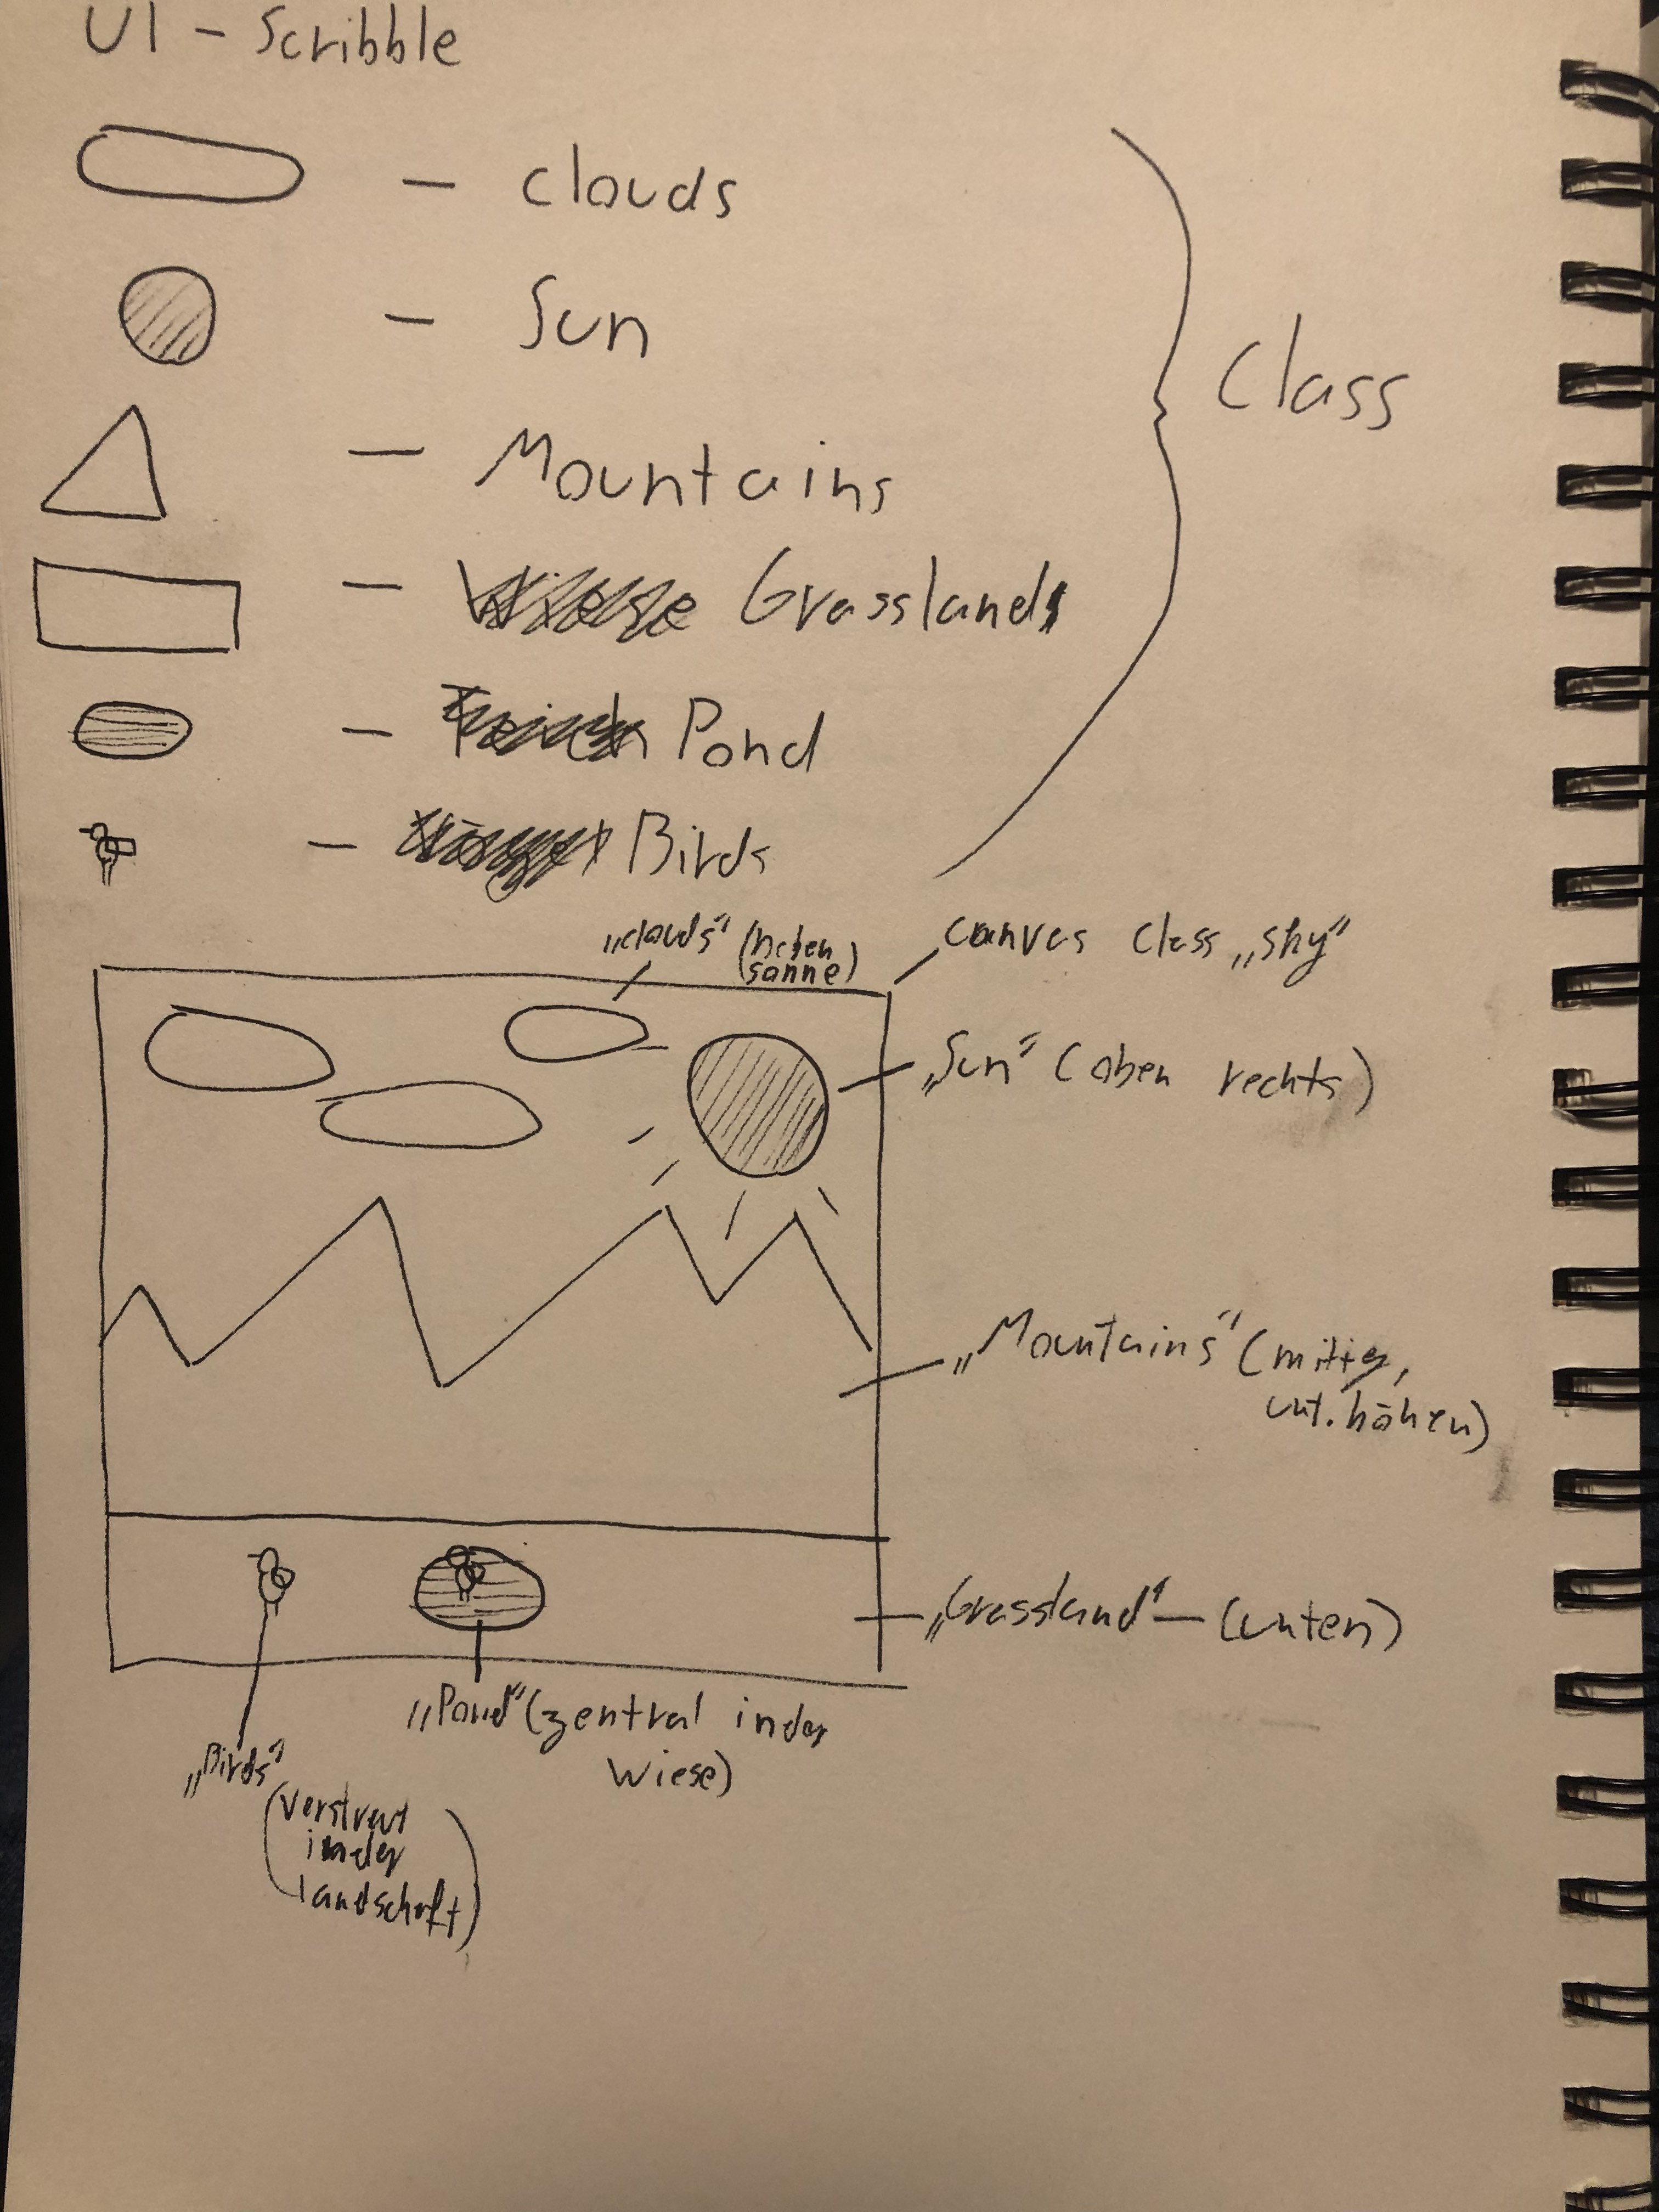 UI - Scribble
— Clouds
— Sun
— Mountains
— Wiese Grasslands
— Teich Pond
— Birds
Class
„clouds" (neben
sonne)
canvas class „sky"
„Sun" (oben rechts)
„Mountains" (mittig,
unt. höhen)
„Grassland" — (unten)
„Pond" (zentral in der
Wiese)
„Birds"
(verstreut
in der
landschaft)